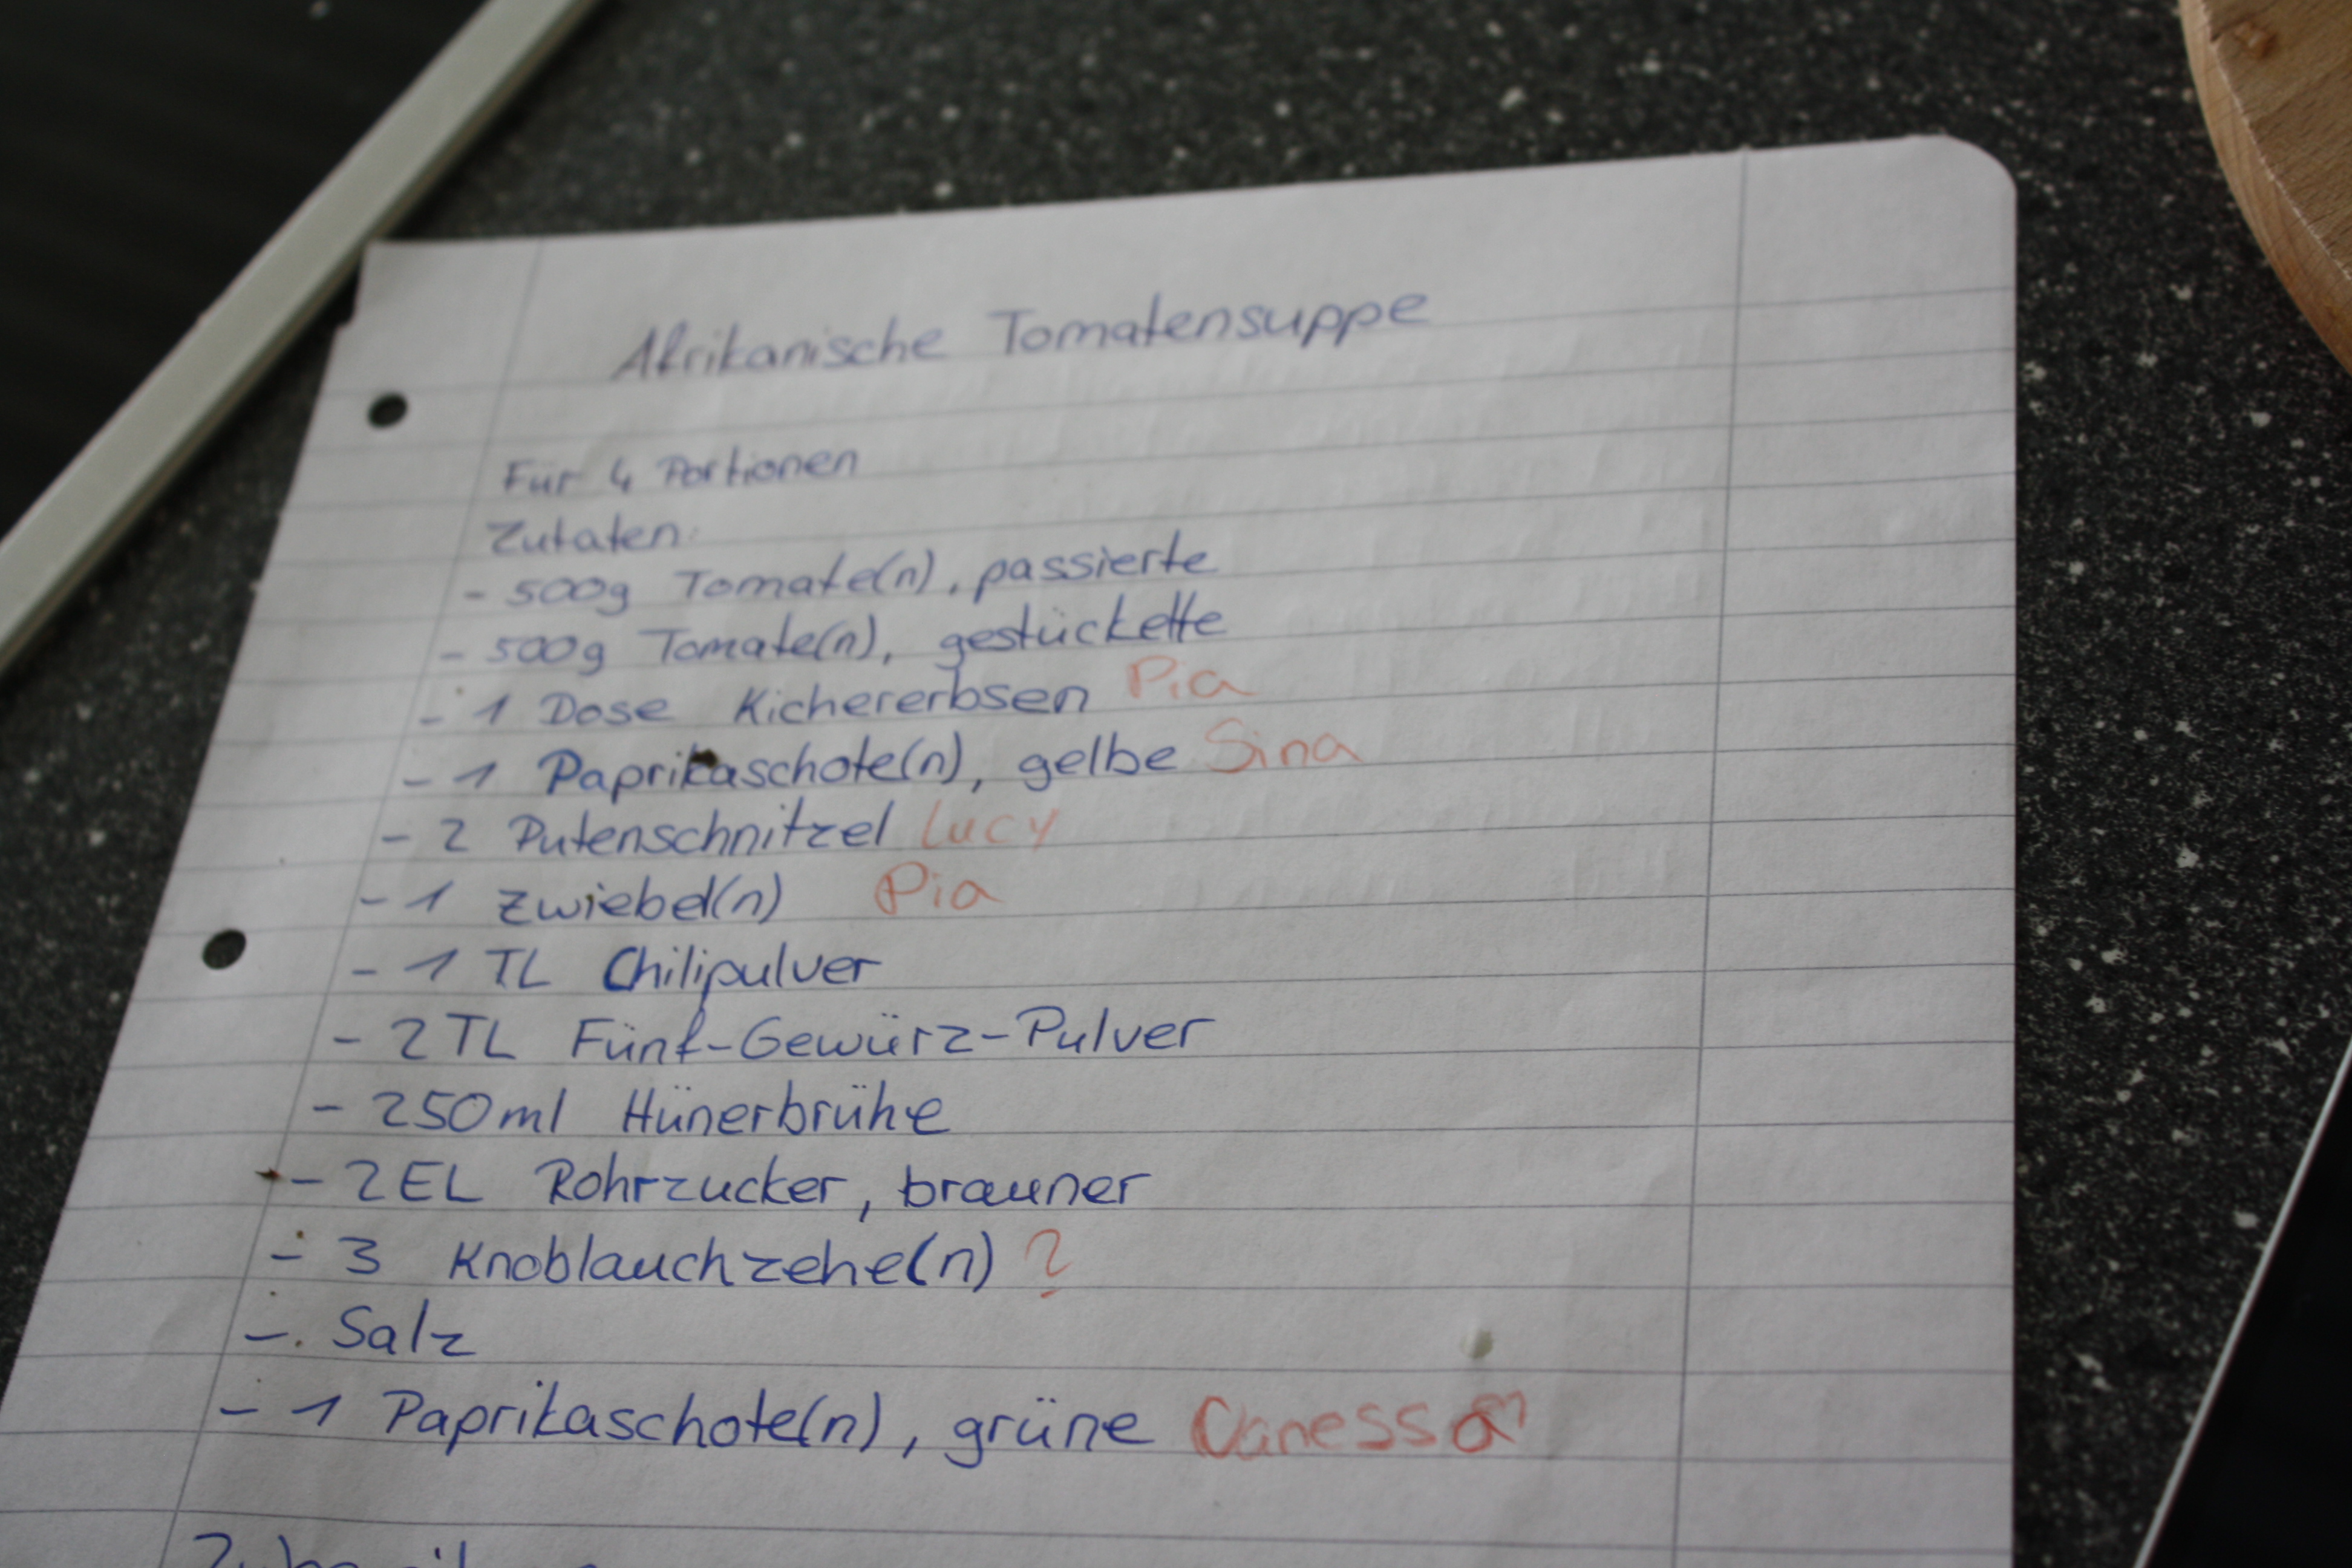 Afrikanische Tomatensuppe
Für 4 Portionen
Zutaten:
- 500g Tomate(n), passierte
- 500g Tomate(n), gestückelte
- 1 Dose Kichererbsen Pia
- 1 Paprikaschote(n), gelbe Sina
- 2 Putenschnitzel Lucy
- 1 Zwiebel(n) Pia
- 1 TL Chilipulver
- 2TL Fünf-Gewürz-Pulver
- 250ml Hünerbrühe
- 2EL Rohrzucker, brauner
- 3 Knoblauchzehe(n) ?
- Salz
- 1 Paprikaschote(n), grüne Vanessa